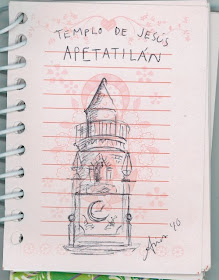 TEMPLO DE JESÚS
APETATILÁN